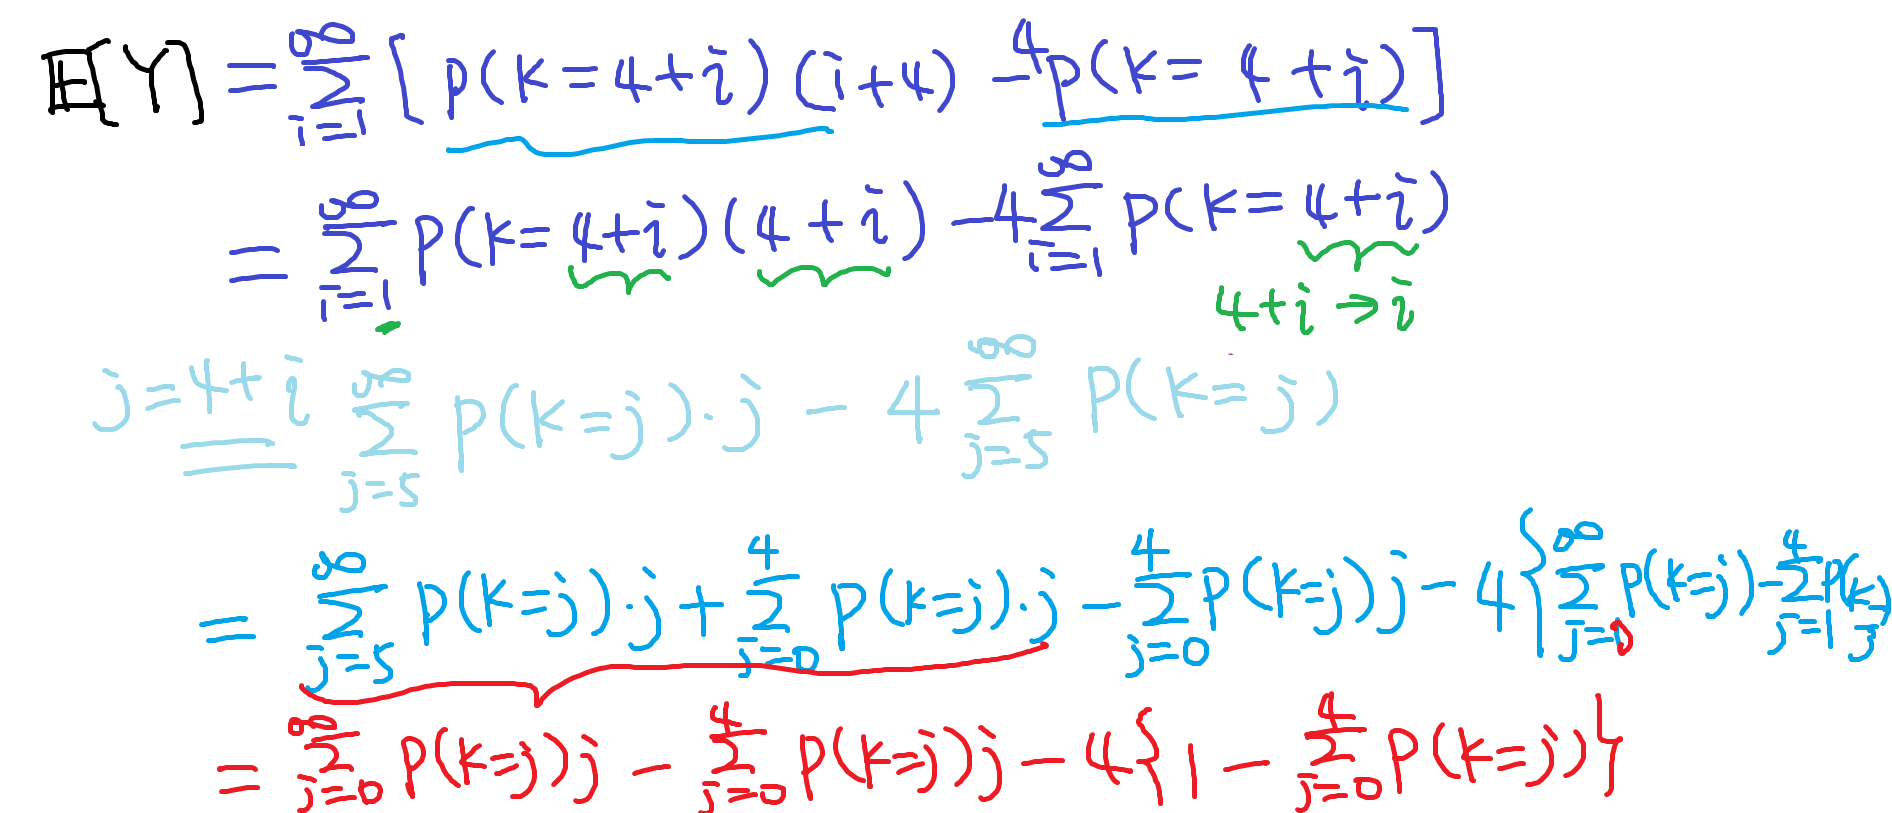 E[Y] = ∑_{i=1}^{∞} [ P(k=4+i)(i+4) - 4P(k=4+i) ]
= ∑_{i=1}^{∞} P(k=4+i)(4+i) - 4∑_{i=1}^{∞} P(k=4+i)
4+i → i
j=4+i ∑_{j=5}^{∞} P(k=j)·j - 4∑_{j=5}^{∞} P(k=j)
= ∑_{j=5}^{∞} P(k=j)·j + ∑_{j=0}^{4} P(k=j)·j - ∑_{j=0}^{4} P(k=j)j - 4{∑_{j=0}^{∞} P(k=j) - ∑_{j=1}^{4} P(k=j)
= ∑_{j=0}^{∞} P(k=j)j - ∑_{j=0}^{4} P(k=j)j - 4{1 - ∑_{j=0}^{4} P(k=j)}